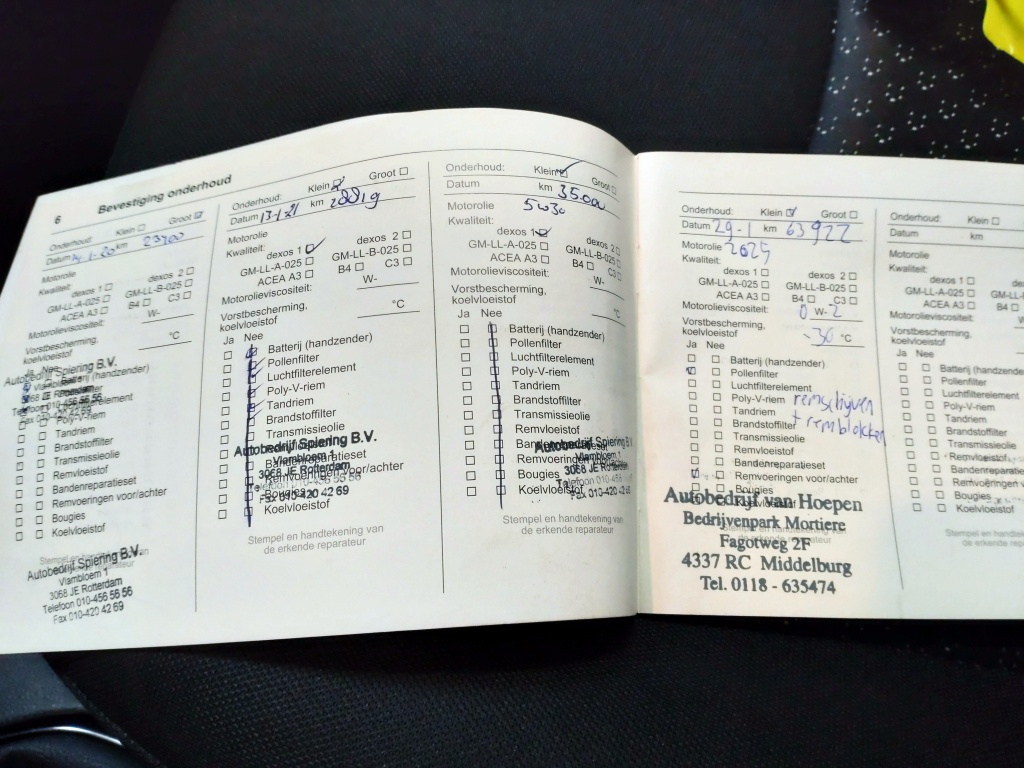 6 Bevestiging onderhoud
Onderhoud: Klein Groot
Datum km 23700
Motorolie
Kwaliteit: dexos 1 dexos 2
GM-LL-A-025 GM-LL-B-025
ACEA A3 B4 C3
Motorolieviscositeit: W-
Vorstbescherming,
koelvloeistof °C
Ja Nee
Batterij (handzender)
Poly-V-riem
Tandriem
Brandstoffilter
Transmissieolie
Remvloeistof
Bandenreparatieset
Remvoeringen voor/achter
Bougies
Koelvloeistof
Autobedrijf Spiering B.V.
Vlambloem 1
3068 JE Rotterdam
Telefoon 010-456 56 56
Fax 010-420 42 69
Stempel en handtekening van
Autobedrijf Spiering B.V.
Vlambloem 1
3068 JE Rotterdam
Telefoon 010-456 56 56
Fax 010-420 42 69
Onderhoud: Klein Groot
Datum 13-1-21 km
Motorolie
Kwaliteit: dexos 1 dexos 2
GM-LL-A-025 GM-LL-B-025
ACEA A3 B4 C3
Motorolieviscositeit: W-
Vorstbescherming,
koelvloeistof °C
Ja Nee
Batterij (handzender)
Pollenfilter
Luchtfilterelement
Poly-V-riem
Tandriem
Brandstoffilter
Transmissieolie
Bandenreparatieset
Remvoeringen voor/achter
Bougies
Koelvloeistof
Autobedrijf Spiering B.V.
Vlambloem 1
3068 JE Rotterdam
Telefoon 010-456 56 56
Fax 010-420 42 69
Stempel en handtekening van
de erkende reparateur
Onderhoud: Klein Groot
Datum km 35.000
Motorolie 5w30
Kwaliteit:
dexos 1 dexos 2
GM-LL-A-025 GM-LL-B-025
ACEA A3 B4 C3
Motorolieviscositeit: W-
Vorstbescherming,
koelvloeistof °C
Ja Nee
Batterij (handzender)
Pollenfilter
Luchtfilterelement
Poly-V-riem
Tandriem
Brandstoffilter
Transmissieolie
Remvloeistof
Remvoeringen
Bougies
Koelvloeistof
Autobedrijf Spiering B.V.
Vlambloem 1
3068 JE Rotterdam
Telefoon 010-456
Fax 010-420 42 69
Stempel en handtekening van
de erkende reparateur
Onderhoud: Klein Groot
Datum 29-1 km 63922
Motorolie 2025
Kwaliteit:
dexos 1 dexos 2
GM-LL-A-025 GM-LL-B-025
ACEA A3 B4 C3
Motorolieviscositeit: 0 W-2
Vorstbescherming,
koelvloeistof -36 °C
Ja Nee
Batterij (handzender)
Pollenfilter
Luchtfilterelement
Poly-V-riem remschijven
Tandriem + remblokken
Brandstoffilter
Transmissieolie
Remvloeistof
Bandenreparatieset
Remvoeringen voor/achter
Bougies
Koelvloeistof
Autobedrijf van Hoepen
Bedrijvenpark Mortiere
Fagotweg 2F
4337 RC Middelburg
Tel. 0118 - 635474
Onderhoud: Klein
Datum km
Motorolie
Kwaliteit:
dexos 1
GM-LL-A-025
ACEA A3
Motorolieviscositeit:
Vorstbescherming,
koelvloeistof
Ja Nee
Batterij (handzender)
Pollenfilter
Luchtfilterelement
Poly-V-riem
Tandriem
Brandstoffilter
Transmissieolie
Remvloeistof
Bandenreparatieset
Remvoeringen voor/achter
Bougies
Koelvloeistof